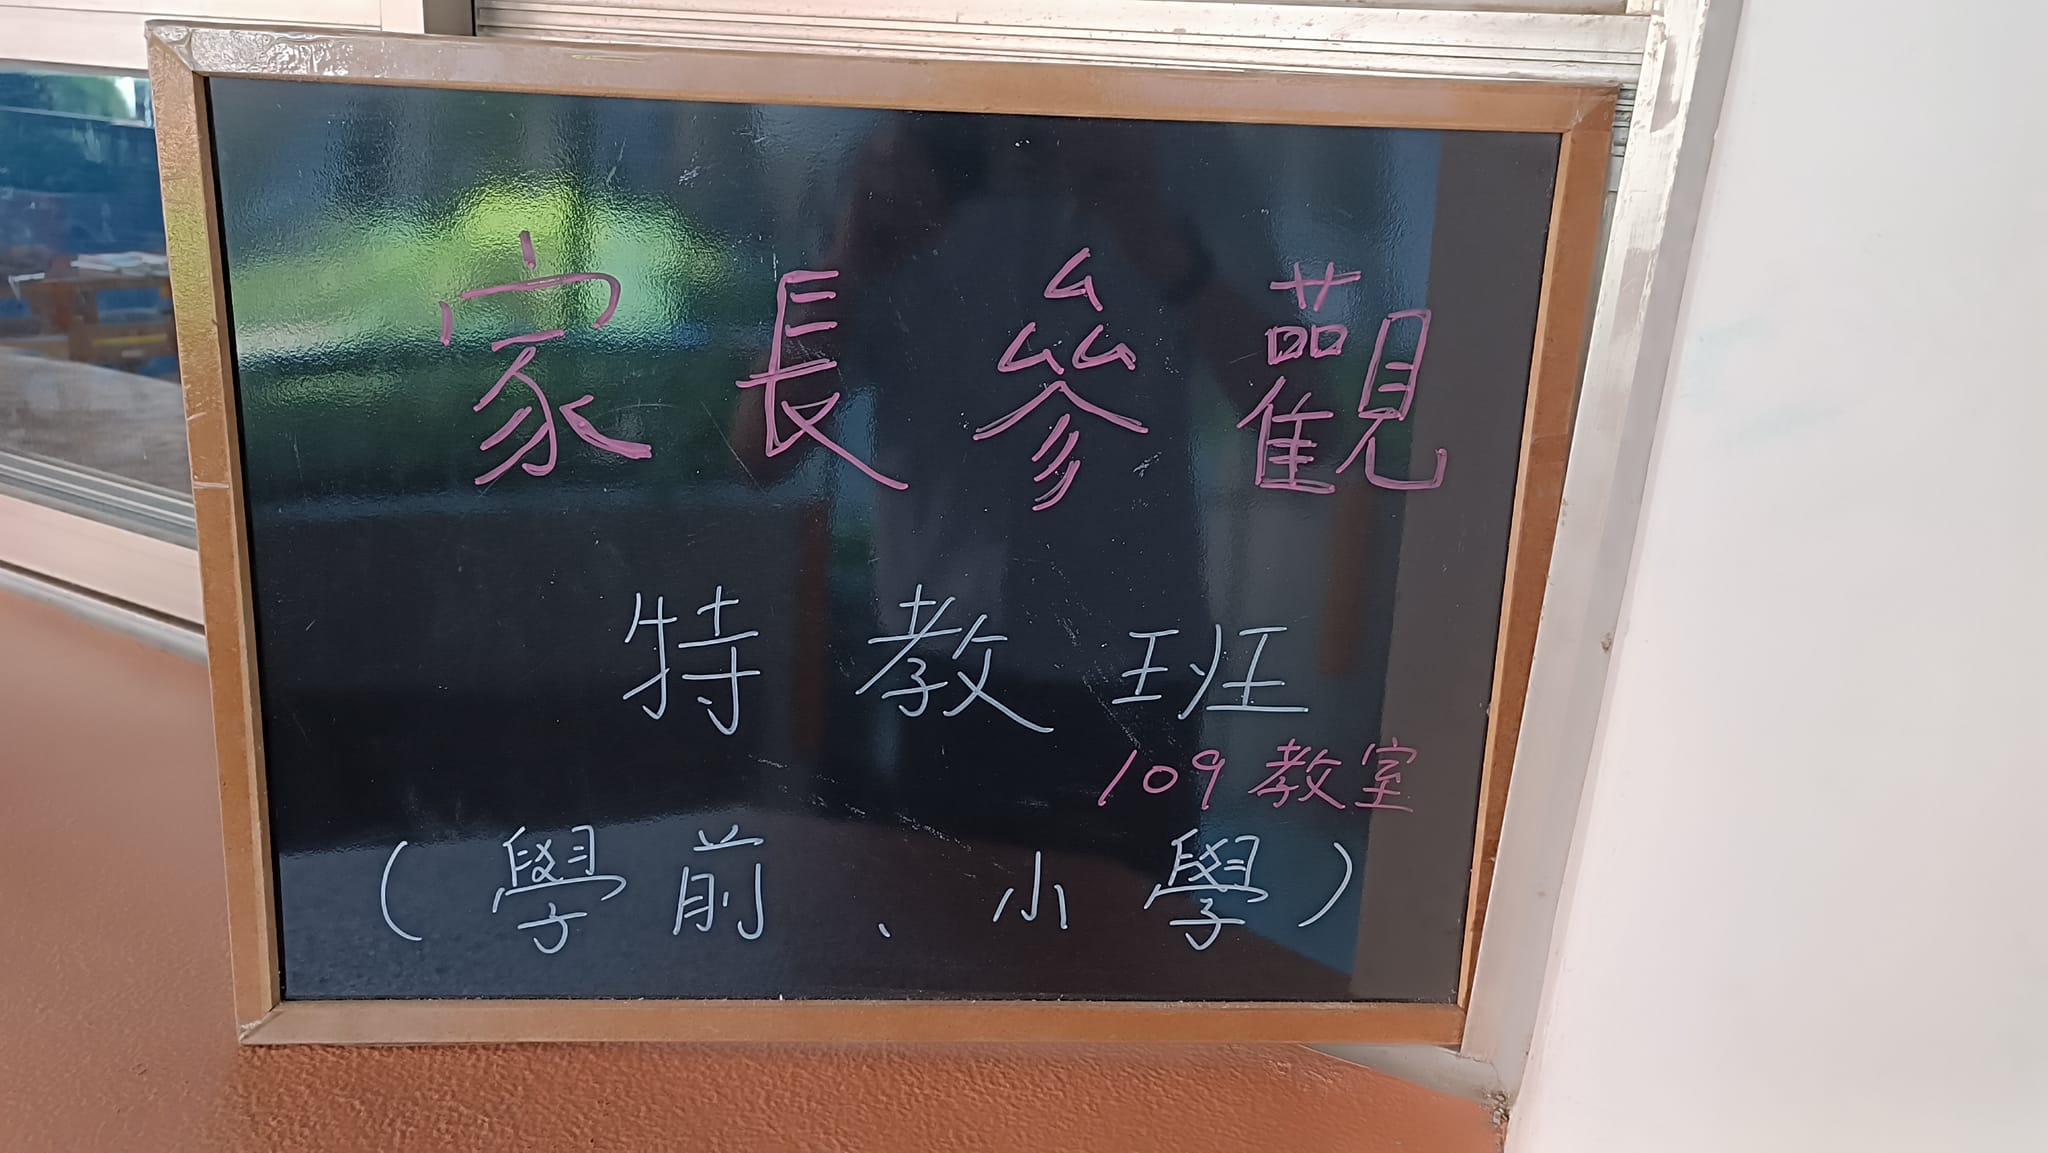 家長參觀
特教班
109教室
(學前、小學)